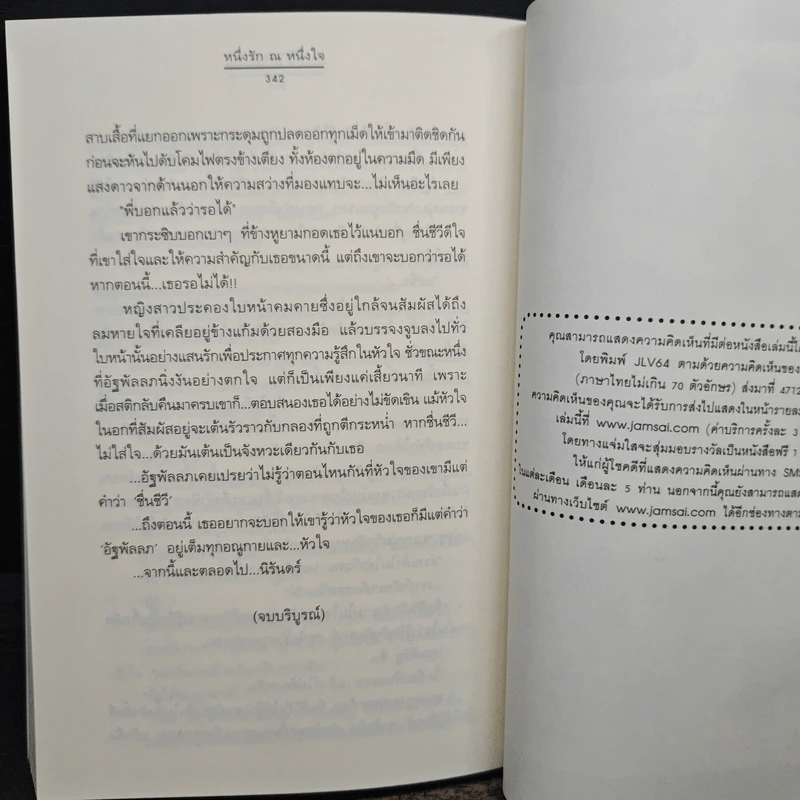 หนึ่งรัก ณ หนึ่งใจ
342
สาบเสื้อที่แยกออกเพราะกระดุมถูกปลดออกทุกเม็ดให้เข้ามาติดชิดกัน
ก่อนจะหันไปดับโคมไฟตรงข้างเตียง ทั้งห้องตกอยู่ในความมืด มีเพียง
แสงดาวจากด้านนอกให้ความสว่างที่มองแทบจะ...ไม่เห็นอะไรเลย
"พี่บอกแล้วว่ารอได้"
เขากระซิบบอกเบาๆ ที่ข้างหูยามกอดเธอไว้แนบอก ชื่นชีวีดีใจ
ที่เขาใส่ใจและให้ความสำคัญกับเธอขนาดนี้ แต่ถึงเขาจะบอกว่ารอได้
หากตอนนี้...เธอรอไม่ได้!!
หญิงสาวประคองใบหน้าคมคายซึ่งอยู่ใกล้จนสัมผัสได้ถึง
ลมหายใจที่เคลียอยู่ข้างแก้มด้วยสองมือ แล้วบรรจงจูบลงไปทั่ว
ใบหน้านั้นอย่างแสนรักเพื่อประกาศทุกความรู้สึกในหัวใจ ชั่วขณะหนึ่ง
ที่อัฐพัลลภนิ่งงันอย่างตกใจ แต่ก็เป็นเพียงแค่เสี้ยวนาที เพราะ
เมื่อสติกลับคืนมาครบเขาก็...ตอบสนองเธอได้อย่างไม่ขัดเขิน แม้หัวใจ
ในอกที่สัมผัสอยู่จะเต้นรัวราวกับกลองที่ถูกตีกระหน่ำ หากชื่นชีวี...
ไม่ใส่ใจ...ด้วยมันเต้นเป็นจังหวะเดียวกันกับเธอ
...อัฐพัลลภเคยเปรยว่าไม่รู้ว่าตอนไหนกันที่หัวใจของเขามีแต่
คำว่า 'ชื่นชีวี'
...ถึงตอนนี้ เธออยากจะบอกให้เขารู้ว่าหัวใจของเธอก็มีแต่คำว่า
'อัฐพัลลภ' อยู่เต็มทุกอณูกายและ...หัวใจ
...จากนี้และตลอดไป...นิรันดร์
(จบบริบูรณ์)
คุณสามารถแสดงความคิดเห็นที่มีต่อหนังสือเล่มนี้ได้
โดยพิมพ์ JLV64 ตามด้วยความคิดเห็นของ
(ภาษาไทยไม่เกิน 70 ตัวอักษร) ส่งมาที่ 4712
ความคิดเห็นของคุณจะได้รับการส่งไปแสดงในหน้ารายละ
เล่มนี้ที่ www.jamsai.com (ค่าบริการครั้งละ 3
โดยทางแจ่มใสจะสุ่มมอบรางวัลเป็นหนังสือฟรี 1
ให้แก่ผู้โชคดีที่แสดงความคิดเห็นผ่านทาง SMS
ในแต่ละเดือน เดือนละ 5 ท่าน นอกจากนี้คุณยังสามารถแสด
ผ่านทางเว็บไซต์ www.jamsai.com ได้อีกช่องทางตาม